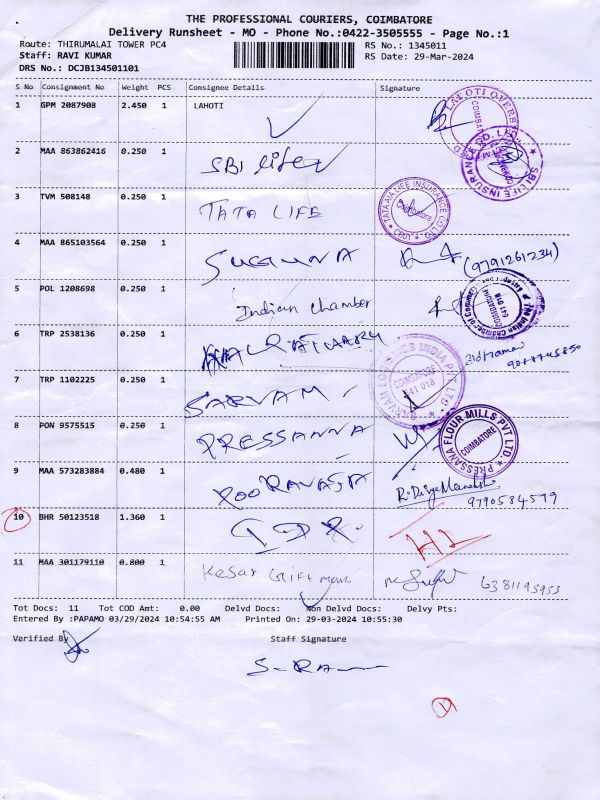 THE PROFESSIONAL COURIERS, COIMBATORE
Delivery Runsheet - MO - Phone No.:0422-3505555 - Page No.:1
Route: THIRUMALAI TOWER PC4 RS No.: 1345011
Staff: RAVI KUMAR RS Date: 29-Mar-2024
DRS No.: DCJB134501101
S No Consignment No Weight PCS Consignee Details Signature
1 GPM 2087908 2.450 1 LAHOTI
2 MAA 863862416 0.250 1 SBI life
SBI LIFE INSURANCE CO. LTD.
3 TVM 508148 0.250 1 TATA LIFE
TATA AIA LIFE INSURANCE CO LTD.
Coimbatore
4 MAA 865103564 0.250 1 SUGUNA (9791261234)
5 POL 1208698 0.250 1 Indian Chamber
COIMBATORE
641 018
6 TRP 2538136 0.250 1
7 TRP 1102225 0.250 1 SARVAM
COIMBATORE
641 018
8 PON 9575515 0.250 1 PRESSANNA
PRESSANA FLOUR MILLS PVT LTD.
COIMBATORE
9 MAA 573283884 0.480 1 POORAVASA
9790584579
10 BHR 50123518 1.360 1
11 MAA 301179110 0.800 1 Kesar Gift 6381195955
Tot Docs: 11 Tot COD Amt: 0.00 Delvd Docs: Non Delvd Docs: Delvy Pts:
Entered By :PAPAMO 03/29/2024 10:54:55 AM Printed On: 29-03-2024 10:55:30
Verified By Staff Signature